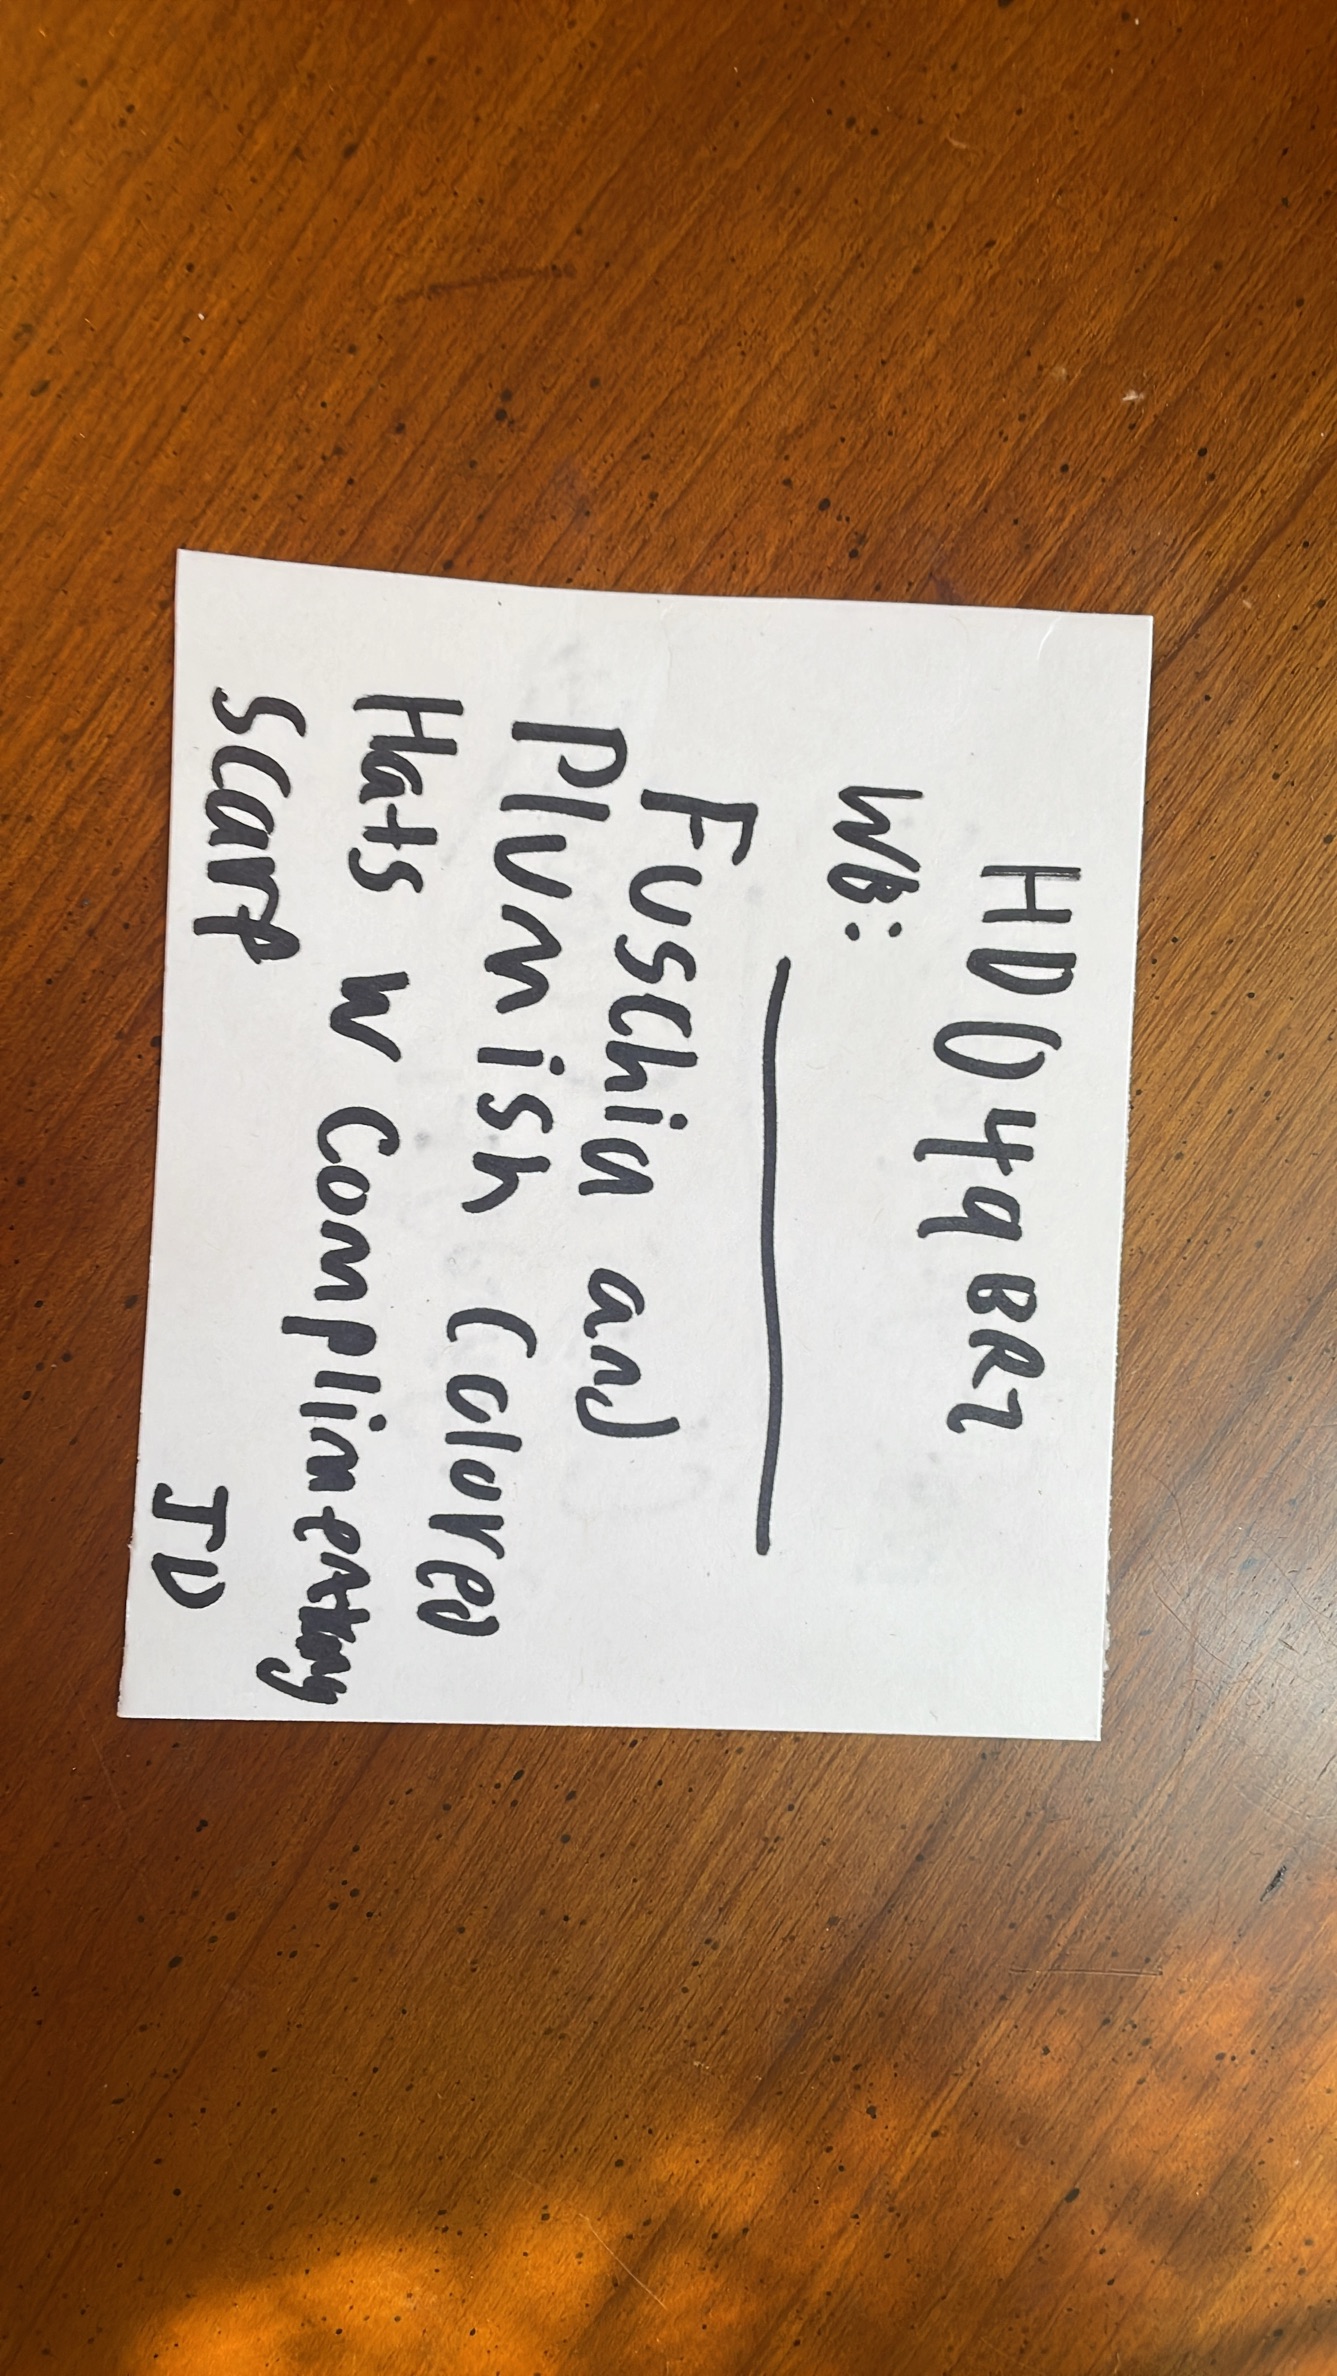 HD049BRZ
WB:
Fuschia and
Plumish Colored
Hats w Complimentary
scarf
JD